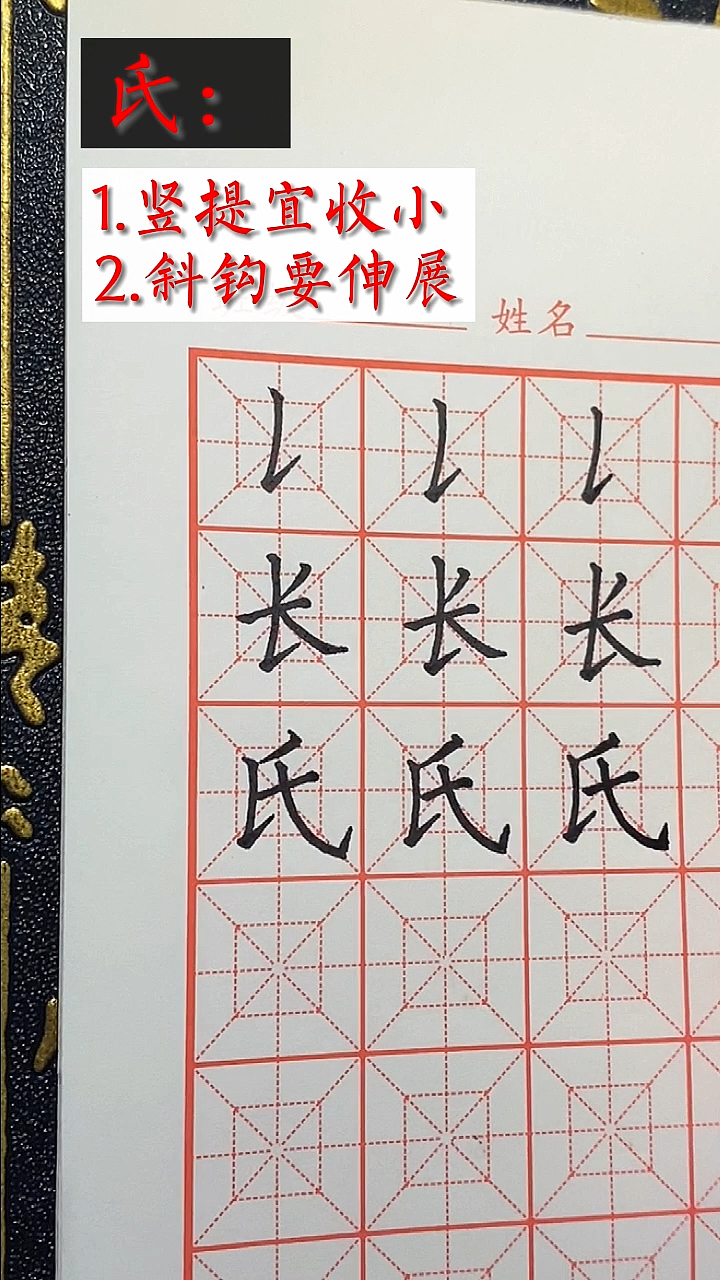 氏：
1.竖提宜收小
2.斜钩要伸展
姓名
长 长 长
氏 氏 氏